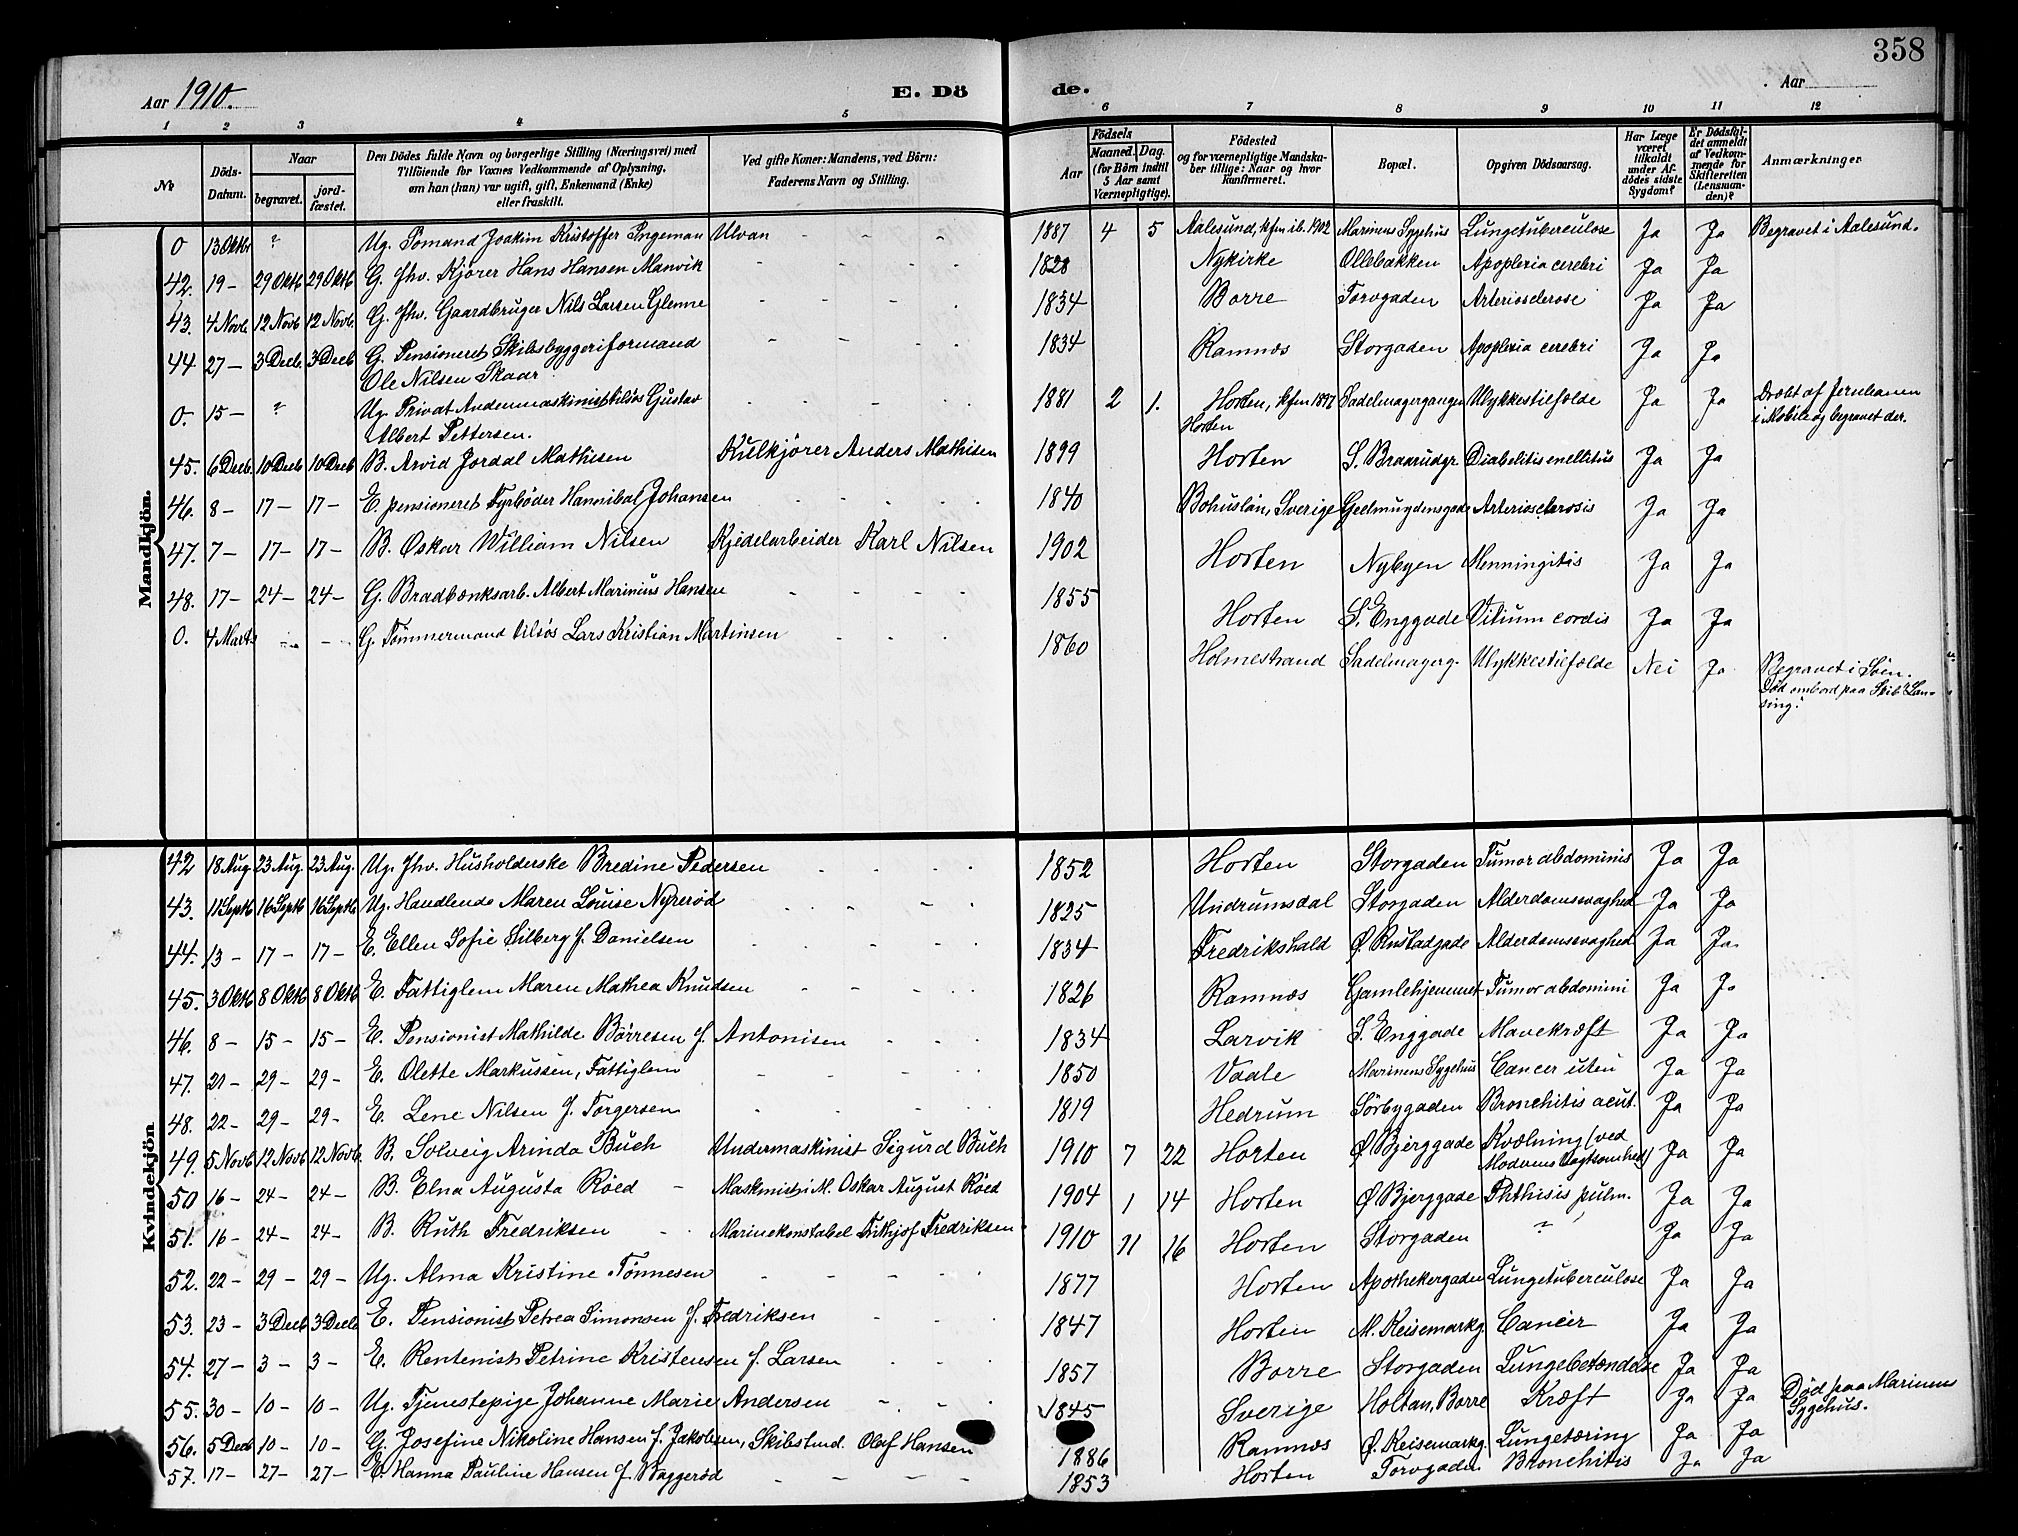 358
Aar 1910. E. Dö de. Aar
1 2 3 4 5 6 7 8 9 10 11 12
No Döds-Datum. Naar begravet. jordfæstet. Den Dödes fulde Navn og borgerlige Stilling (Næringsvei) med Tilföiende for Voxnes Vedkommende af Oplysning, om han (hun) var ugift, gift, Enkemand (Enke) eller fraskilt. Ved gifte Koner: Mandens, ved Börn: Faderens Navn og Stilling. Födsels Aar Maaned. Dag. (for Börn indtil 5 Aar samt Værnepligtige). Födested og for værnepligtige Mandskaber tillige: Naar og hvor konfirmeret. Bopæl. Opgiven Dödsaarsag. Har Læge været tilkaldt under Afdödes sidste Sygdom? Er Dödsfaldet anmeldt af Vedkommende for Skifteretten (Lensmanden)? Anmærkninger
Mandkjön.
0 13 Oktr ? Ug. Tømand Joakim Kristoffer Ingeman Ulvan - - - 1887 4 5 Aalesund, kfm ib. 1902 Marinens Sygehus Lungetuberculose Ja Ja Begravet i Aalesund.
42. 19 - 29 Oktb 29 Oktb G. fhv. Kjører Hans Hansen Manvik - - - 1828 Nykirke Ollebakken Apoplexia cerebri Ja Ja
43. 4 Novb. 12 Novb 12 Novb. G. fhv. Gaardbruger Nils Larsen Glenne - - - 1834 Borre Torvgaden Arteriosclerose Ja Ja
44 27 - 3 Decb. 3 Decb G. Pensioneret Skibsbyggeriformand - - - 1834 Ramnæs Storgaden Apoplexia cerebri Ja Ja
Ole Nilsen Skaar
0. 15 - ? Ug. Privat Andenmaskinist tilsös Gustav - - - 1881 2 1. Horten, kfm 1897 Sadelmagergangen Ulykkestilfælde Ja Ja Dræbt af Jernbanen
Albert Pettersen. Horten i Mobile og begravet der.
45. 6 Decb. 10 Decb 10 Decb B. Arvid Jordal Mathisen Kulkjörer Anders Mathisen 1899 Horten S. Braarudgr. Diabelitis mellitus Ja Ja
46. 8 - 17 - 17 - E. pensioneret Fyrböder Hannibal Johansen - - - 1840 Bohuslän, Sverige Geelmuydensgade Arteriosclerosis Ja Ja
47. 7 - 17 - 17 - B. Oskar William Nilsen Kjedelarbeider Karl Nilsen 1902 Horten Nybyen Menningitis Ja Ja
48. 17 - 24 - 24 - G. Bradbænksarb. Albert Marinius Hansen - - - 1855 Horten S. Enggade Vitium cordis Ja Ja
0. 4 Marts - - G. Tömmermand tilsös Lars Kristian Martinsen - - - 1860 Holmestrand Sadelmagerg. Ulykkestilfælde Nei Ja Begravet i Söen.
Död ombord paa Skib "Lansing".
Kvindekjön
42 18 Aug 23 Aug. 23 Aug. Ug. fhv. Husholderske Bredine Pedersen - - - 1852 Horten Storgaden Tumor abdominis Ja Ja
43. 11 Septb 16 Septb 16 Septb Ug. Handlende Maren Louise Nyreröd - - - 1825 Undrumsdal Storgaden Alderdomssvaghed Ja Ja
44. 13 - 17 - 17 - E. Ellen Sofie Silberg f. Danielsen - - - 1834 Fredrikshald Ø. Rustadgade Alderdomssvaghed Ja Ja
45. 3 Oktb 8 Oktb 8 Oktb E. Fattiglem Maren Mathea Knudsen - - - 1826 Ramnæs Gamlehjemmet Tumor abdomini Ja Ja
46. 8 - 15 - 15 - E. Pensionist Mathilde Börresen f. Antonisen - - - 1834 Larvik S. Enggade Mavekræft Ja Ja
47. 21 - 29 - 29 - E. Olette Markussen, Fattiglem - - - 1850 Vaale Marinens Sygehus Cancer uteri Ja Ja
48. 22 - 29 - 29 - E. Lene Nilsen f. Torgersen - - - 1819 Hedrum Sörbygaden Bronchitis acut. Ja Ja
49. 5 Novb 12 Novb 12 Novb. B. Solveig Arinda Buch Undermaskinist Sigurd Buch 1910 7 22 Horten Ø. Bjerggade Kvælning (ved Ja Ja
Moderens Uagtsomhed)
50 16 - 24 - 24 - B. Elna Augusta Röed - Maskinist i M. Oskar August Röed 1904 1 14 Horten Ø. Bjerggade Phthisis pulm. Ja Ja
51. 16 - 24 - 24 - B. Ruth Fredriksen - Marinekonstabel Frithjof Fredriksen 1910 11 16 Horten Storgaden ? Ja Ja
52. 22 - 29 - 29 - Ug. Alma Kristine Tönnesen - - - 1877 Horten Apothekergaden Lungetuberculose Ja Ja
53. 23 - 3 Decb 3 Decb E. Pensionist Petrea Simonsen f. Fredriksen - - - 1847 Horten M. Keisemarkg. Cancer Ja Ja
54. 27 - 3 - 3 - E. Rentenist Petrine Kristensen f. Larsen - - - 1857 Borre Storgaden Lungebetændelse Ja Ja
55. 30 - 10 - 10 - Ug. Tjenestepige Johanne Marie Andersen - - - 1845 Sverige Holtan, Borre Kræft Ja Ja Död paa Marinens
Sygehus.
56. 5 Decb 10 - 10 - G. Josefine Nikoline Hansen f. Jakobsen, Skibstmd. Olaf Hansen 1886 Ramnæs Ø. Keisemarkg. Lungetæring Ja Ja
57. 17 - 27 - 27 - E. Hanna Pauline Hansen f. Baggeröd - - - 1853 Horten Torvgaden Bronchitis Ja Ja